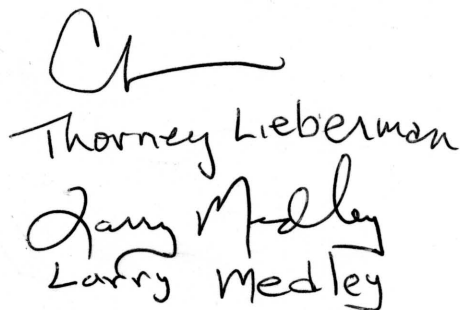 Thorney Lieberman
Larry Medley
Larry Medley